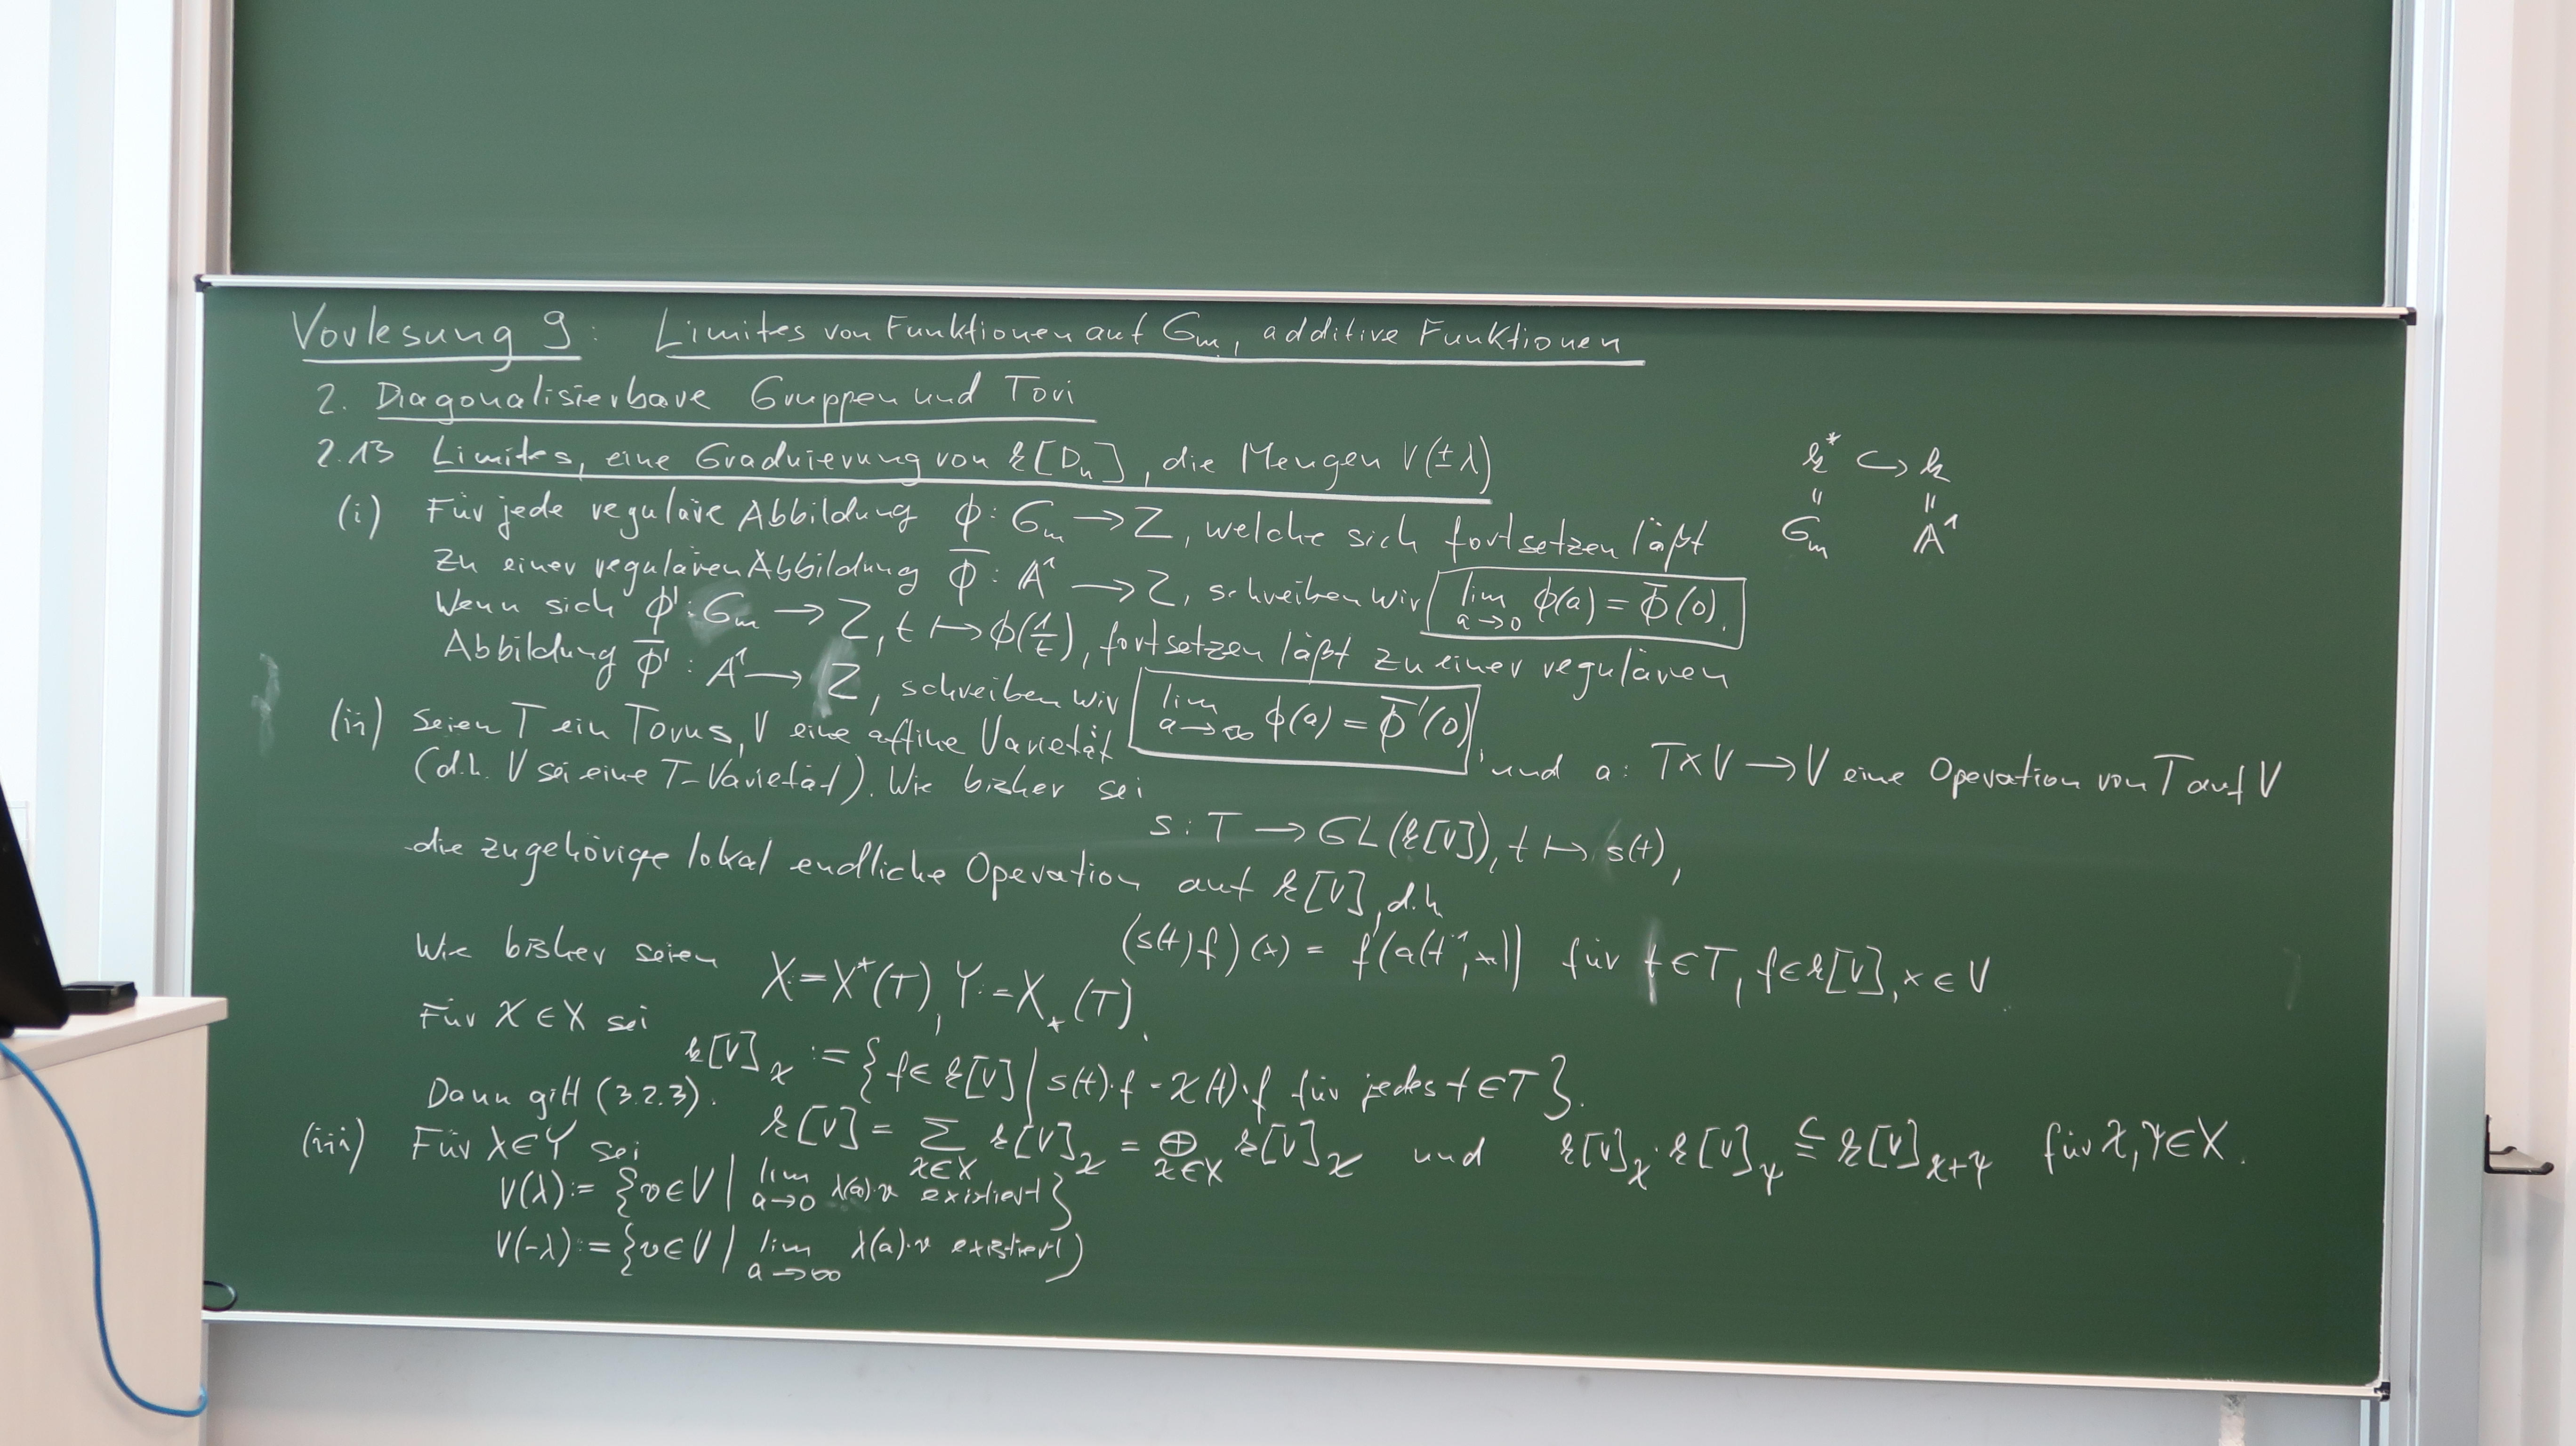 Vorlesung 9: Limites von Funktionen auf Gₘ, additive Funktionen
2. Diagonalisierbare Gruppen und Tori
2.13 Limites, eine Graduierung von k[Dₙ], die Mengen V(±λ)
k* ↪ k
" "
Gₘ 𝔸¹
(i) Für jede reguläre Abbildung ϕ: Gₘ → Z, welche sich fortsetzen läßt
zu einer regulären Abbildung ϕ̅: 𝔸¹ → Z, schreiben wir lim_{a→0} ϕ(a) = ϕ̅(0).
Wenn sich ϕ': Gₘ → Z, t ↦ ϕ(1/t), fortsetzen läßt zu einer regulären
Abbildung ϕ̅': A¹ → Z, schreiben wir lim_{a→∞} ϕ(a) = ϕ̅'(0)
(ii) Seien T ein Torus, V eine affine Varietät, und a: T×V → V eine Operation von T auf V
(d.h. V sei eine T-Varietät). Wie bisher sei
s: T → GL(k[V]), t ↦ s(t),
die zugehörige lokal endliche Operation auf k[V], d.h
(s(t)f)(x) = f(a(t⁻¹,x)) für t∈T, f∈k[V], x∈V.
Wie bisher seien
X:=X*(T), Y:=X_*(T).
Für χ∈X sei
k[V]_χ := {f∈k[V] | s(t)·f = χ(t)·f für jedes t∈T}.
Dann gilt (3.2.3).
k[V] = Σ_{χ∈X} k[V]_χ = ⊕_{χ∈X} k[V]_χ und k[V]_χ·k[V]_ψ ⊆ k[V]_{χ+ψ} für χ,ψ∈X.
(iii) Für λ∈Y sei
V(λ):= {v∈V | lim_{a→0} λ(a)·v existiert}
V(-λ):= {v∈V | lim_{a→∞} λ(a)·v existiert}